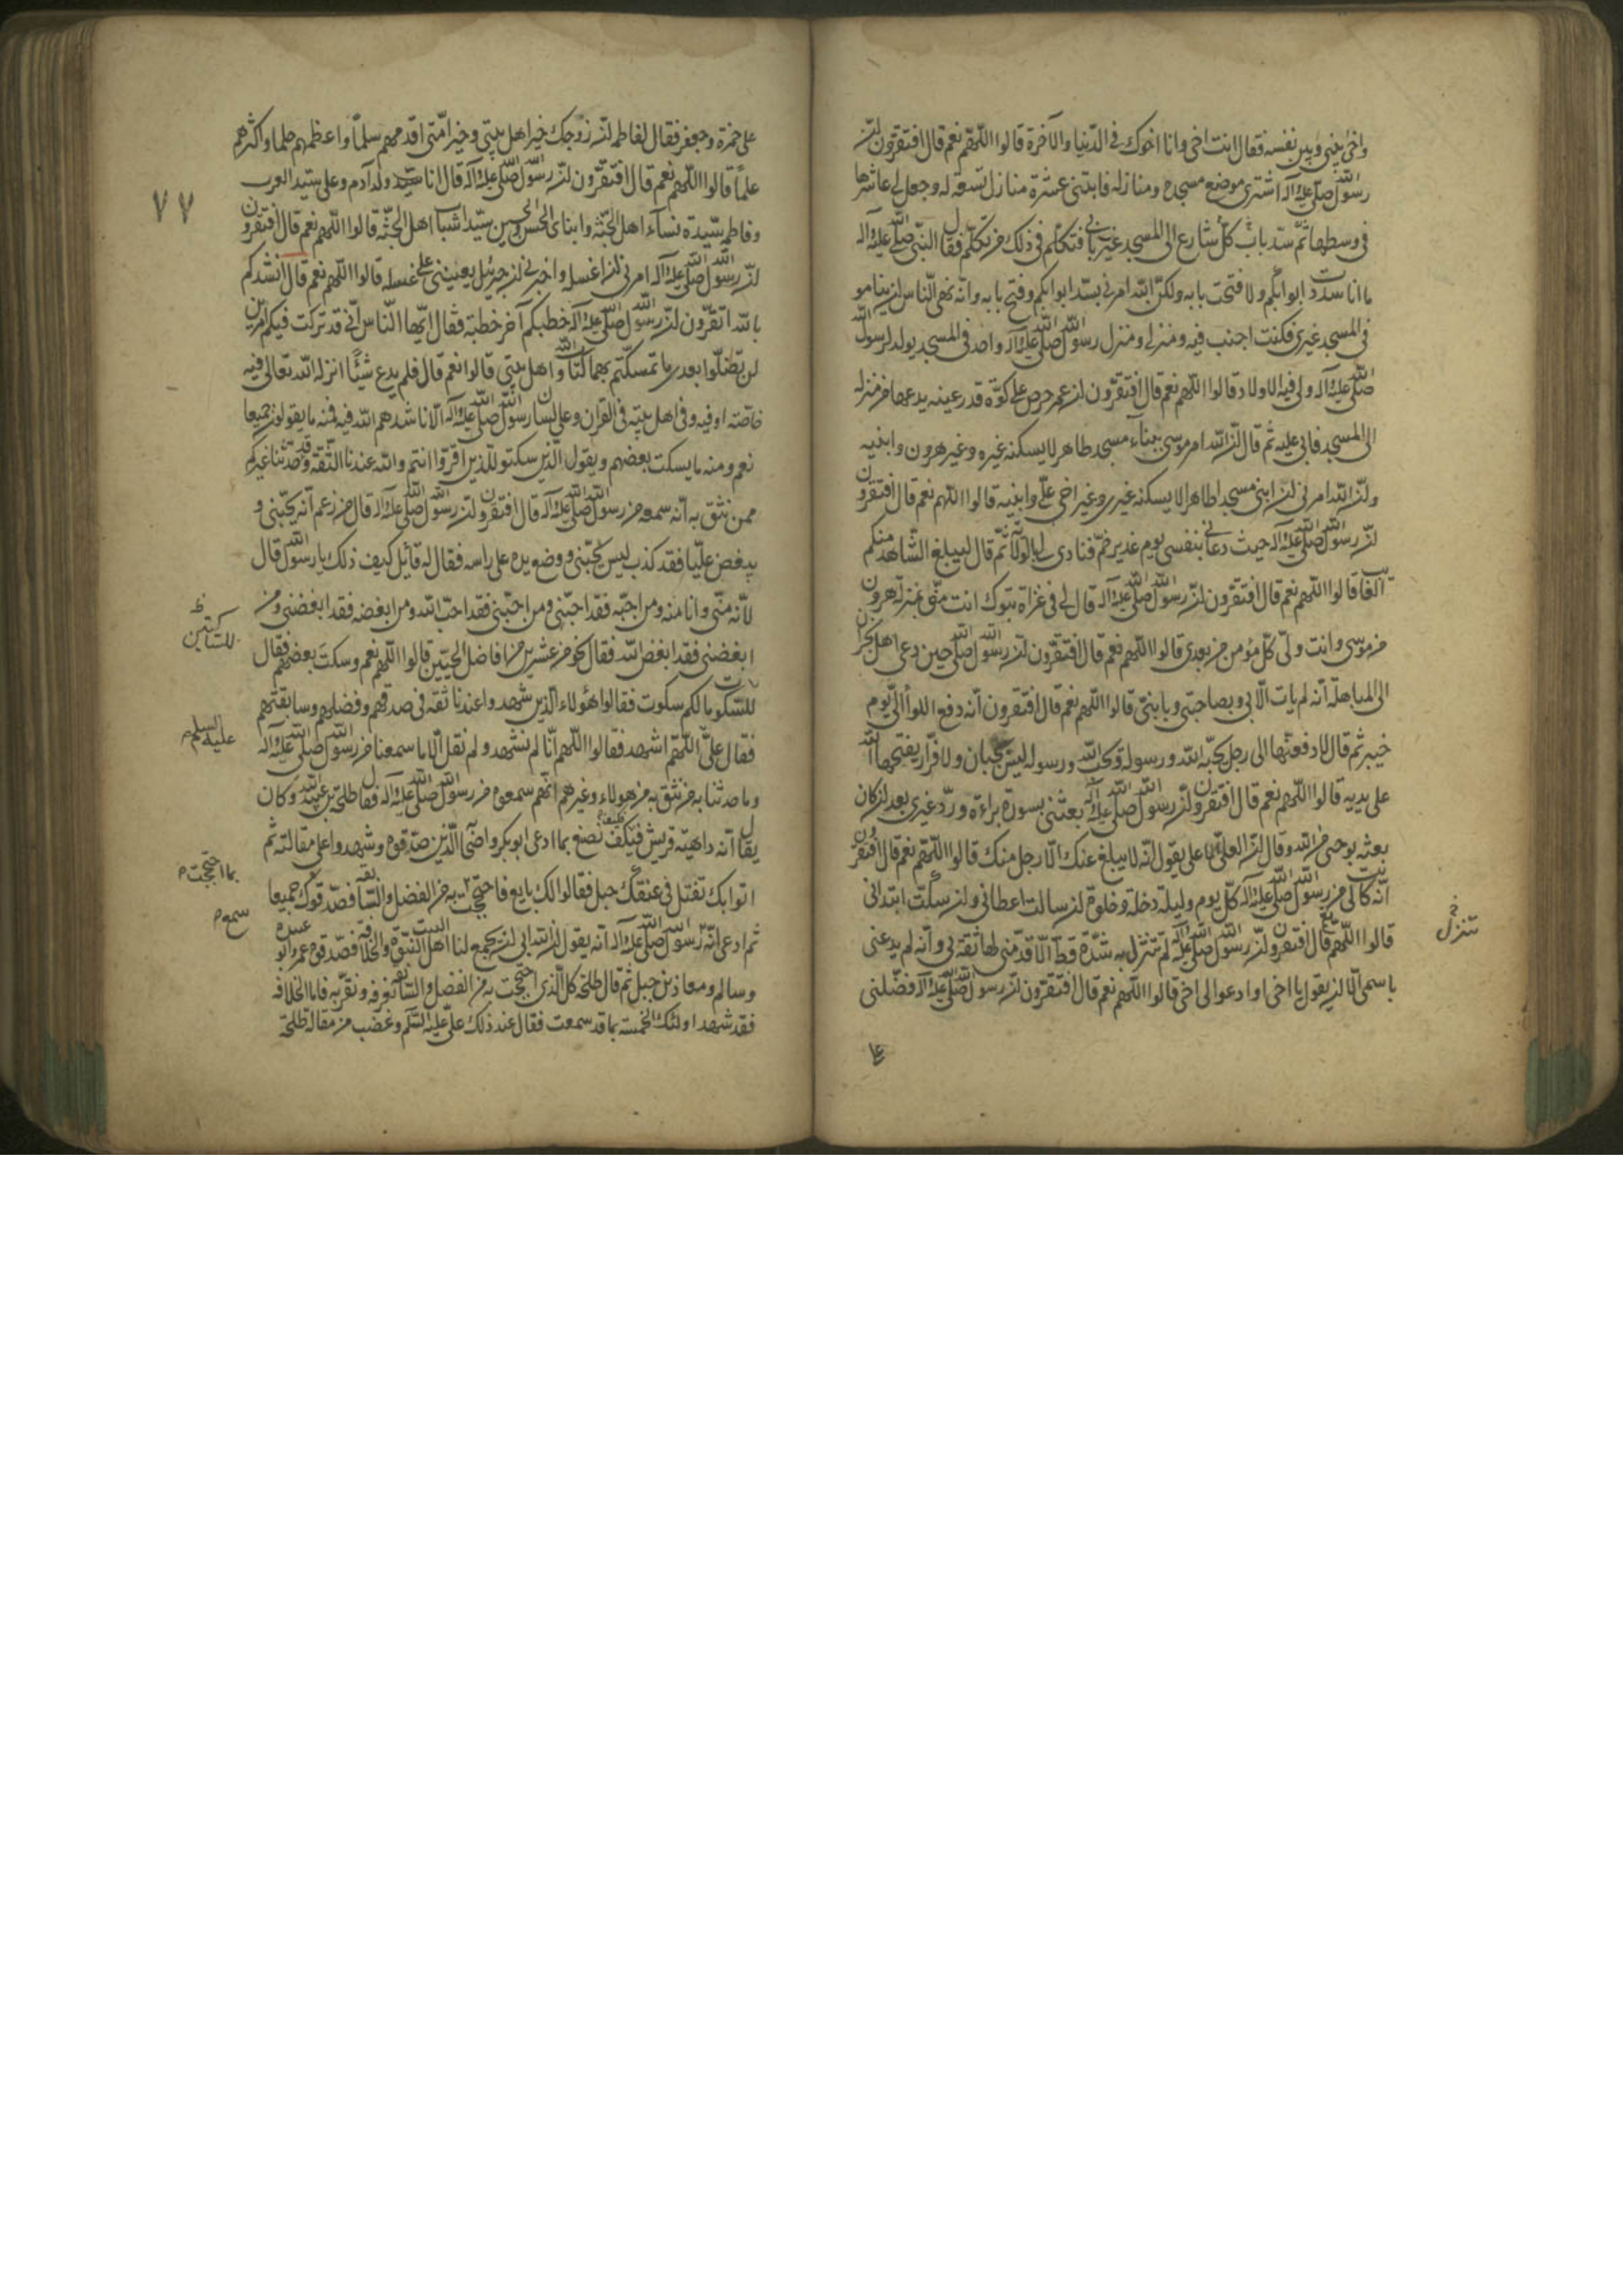 واخى بينى وبين نفسه فقال انت اخى وانا اخوك فى الدنيا والآخرة قالوا اللهم نعم قال افتقرون ان
رسول الله صلى الله عليه وآله اشترى موضع مسجده ومنازله فابتنى عشرة منازل تسعة له وجعل لى عاشرها
فى وسطها ثم سد باب كل شارع الى المسجد غير بابى فتكلم فى ذلك من تكلم فقال النبى صلى الله عليه وآله
ما انا سددت ابوابكم ولا فتحت بابه ولكن الله امرنى بسد ابوابكم وفتح بابه وانه نهى الناس ان يناموا
فى المسجد غيرى فكنت اجنب فيه ومنزلى ومنزل رسول الله صلى الله عليه وآله واحد فى المسجد يولد لرسول الله
صلى الله عليه وآله ولى فيه الاولاد قالوا اللهم نعم قال افتقرون ان عمر حرص على كوة قدر عينه يدعها من منزله
الى المسجد فابى عليه ثم قال ان الله امر موسى ببناء مسجد طاهر لا يسكنه غيره وغير هرون وابنيه
وان الله امرنى ان ابنى مسجدا طاهرا لا يسكنه غيرى وغير اخى على وابنيه قالوا اللهم نعم قال افتقرون
ان رسول الله صلى الله عليه وآله حيث دعانى بنفسى يوم غدير خم فنادى لى بالولاية ثم قال ليبلغ الشاهد منكم
الغايب قالوا اللهم نعم قال افتقرون ان رسول الله صلى الله عليه وآله قال لى فى غزاة تبوك انت منى بمنزلة هرون
من موسى وانت ولى كل مؤمن من بعدى قالوا اللهم نعم قال افتقرون ان رسول الله صلى حين دعى اهل نجران
الى المباهلة انه لم يات الا بى وبصاحبتى وبابنى قالوا اللهم نعم قال افتقرون انه دفع اللوا الى يوم
خيبر ثم قال لادفعنها الى رجل يحبه الله ورسوله ويحب الله ورسوله ليس بجبان ولا فرار يفتحها الله
على يديه قالوا اللهم نعم قال افتقرون ان رسول الله صلى الله عليه وآله بعثنى بسورة براءة ورد غيرى بعد ان كان
بعثه بوحى من الله وقال ان العلى الاعلى يقول انه لا يبلغ عنك الا رجل منك قالوا اللهم نعم قال افتقرون
انه كانت لى من رسول الله صلى الله عليه وآله كل يوم وليلة دخلة وخلوة ان سالت اعطانى وان سكت ابتدانى
قالوا اللهم نعم قال افتقرون ان رسول الله صلى الله عليه وآله لم تنزل به شدة قط الا قدمنى لها ثقة بى وانه لم يدعنى
تنزل خ
باسمى الا ان يقول يا اخى او ادعوا الى اخى قالوا اللهم نعم قال افتقرون ان رسول الله صلى الله عليه وآله فضلنى
على
٧٧
على حمزة وجعفر فقال لفاطمة ان زوجك خير اهل بيتى وخير امتى اقدمهم سلما واعظمهم حلما واكثرهم
علما قالوا اللهم نعم قال افتقرون ان رسول الله صلى الله عليه وآله قال انا سيد ولد آدم وعلى سيد العرب
وفاطمة سيدة نساء اهل الجنة وابناى الحسن والحسين سيدا شباب اهل الجنة قالوا اللهم نعم قال افتقرون
ان رسول الله صلى الله عليه وآله امرنى ان اغسله واخبرنى ان جبرئيل يعيننى على غسله قالوا اللهم نعم قال انشدكم
بالله اتقرون ان رسول الله صلى الله عليه وآله خطبكم آخر خطبة فقال ايها الناس انى قد تركت فيكم امرين
لن تضلوا بعدى ما تمسكتم بهما كتاب الله واهل بيتى قالوا نعم قال فلم يدع شيئا انزله الله تعالى فيه
خاصة او فيه وفى اهل بيته فى القرآن وعلى لسان رسول الله صلى الله عليه وآله الا ناشدهم الله فيه فمنه ما يقولون جميعا
نعم ومنه ما يسكت بعضهم ويقول الذين سكتوا للذين اقروا انتم والله عندنا الثقة وقد حدثنا غيركم
ممن نثق به انه سمعه من رسول الله صلى الله عليه وآله قال افتقرون ان رسول الله صلى الله عليه وآله قال من زعم انه يحبنى و
يبغض عليا فقد كذب ليس يحبنى ووضع يده على راسه فقال له قائل كيف ذلك يا رسول الله قال
لانه منى وانا منه ومن احبه فقد احبنى ومن احبنى فقد احب الله ومن ابغضه فقد ابغضنى ومن
ابغضنى فقد ابغض الله فقال نحو من عشرين من افاضل الحيين قالوا اللهم نعم وسكت بعضهم فقال
للساكتين ظ
للسكوت ما لكم سكوت فقالوا هؤلاء الذين شهدوا عندنا ثقة فى صدقهم وفضلهم وسابقتهم
فقال على اللهم اشهد فقالوا اللهم انا لم نشهد ولم نقل الا ما سمعنا من رسول الله صلى الله عليه وآله
عليه السلم م
وما حدثنا به من نثق به من هؤلاء وغيرهم انهم سمعوه من رسول الله صلى الله عليه وآله فقال طلحة بن عبيد الله وكان
يقال انه داهية قريش فكيف نصنع بما ادعى ابوبكر واصحابه الذين صدقوه وشهدوا على مقالته ثم
اتوا بك تقتل فى عنقك حبل فقالوا لك بايع فاحتججت به من الفضل والسابقة فصدقوك جميعا
بما احتججت م
ثم ادعى انه رسول الله صلى الله عليه وآله انه يقول ان الله ابى ان يجمع لنا اهل البيت النبوة والخلافة فصدقوه عمر وابو عبيدة
سمع م
وسالم ومعاذ بن جبل ثم قال طلحة كل الذى احتججت به من الفضل والسابقة نعرفه ونقر به فاما الخلافة
فقد شهد اولئك الخمسة بما قد سمعت فقال عند ذلك على عليه السلم وغضب من مقالة طلحة